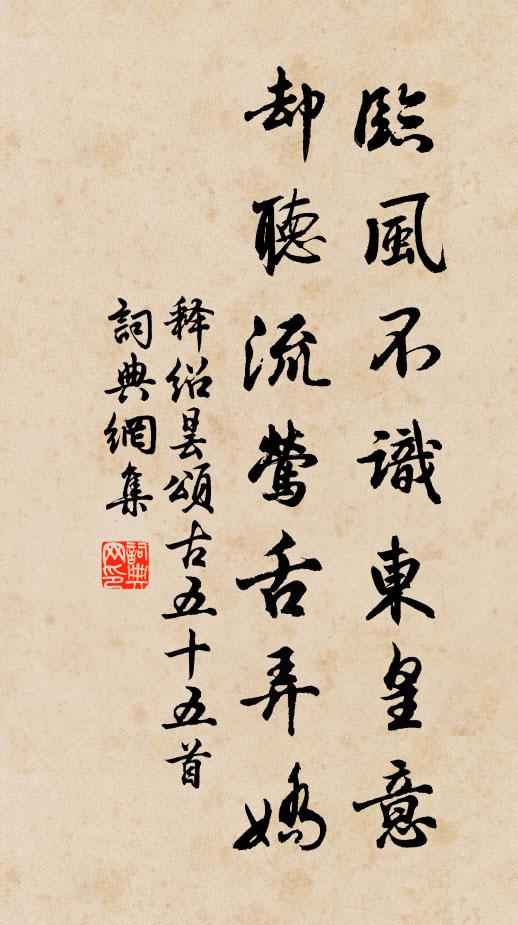 臨風不識東皇意
却聽流鶯舌弄嬌
释绍昙頌古五十五首
詞典網集
詞典网印